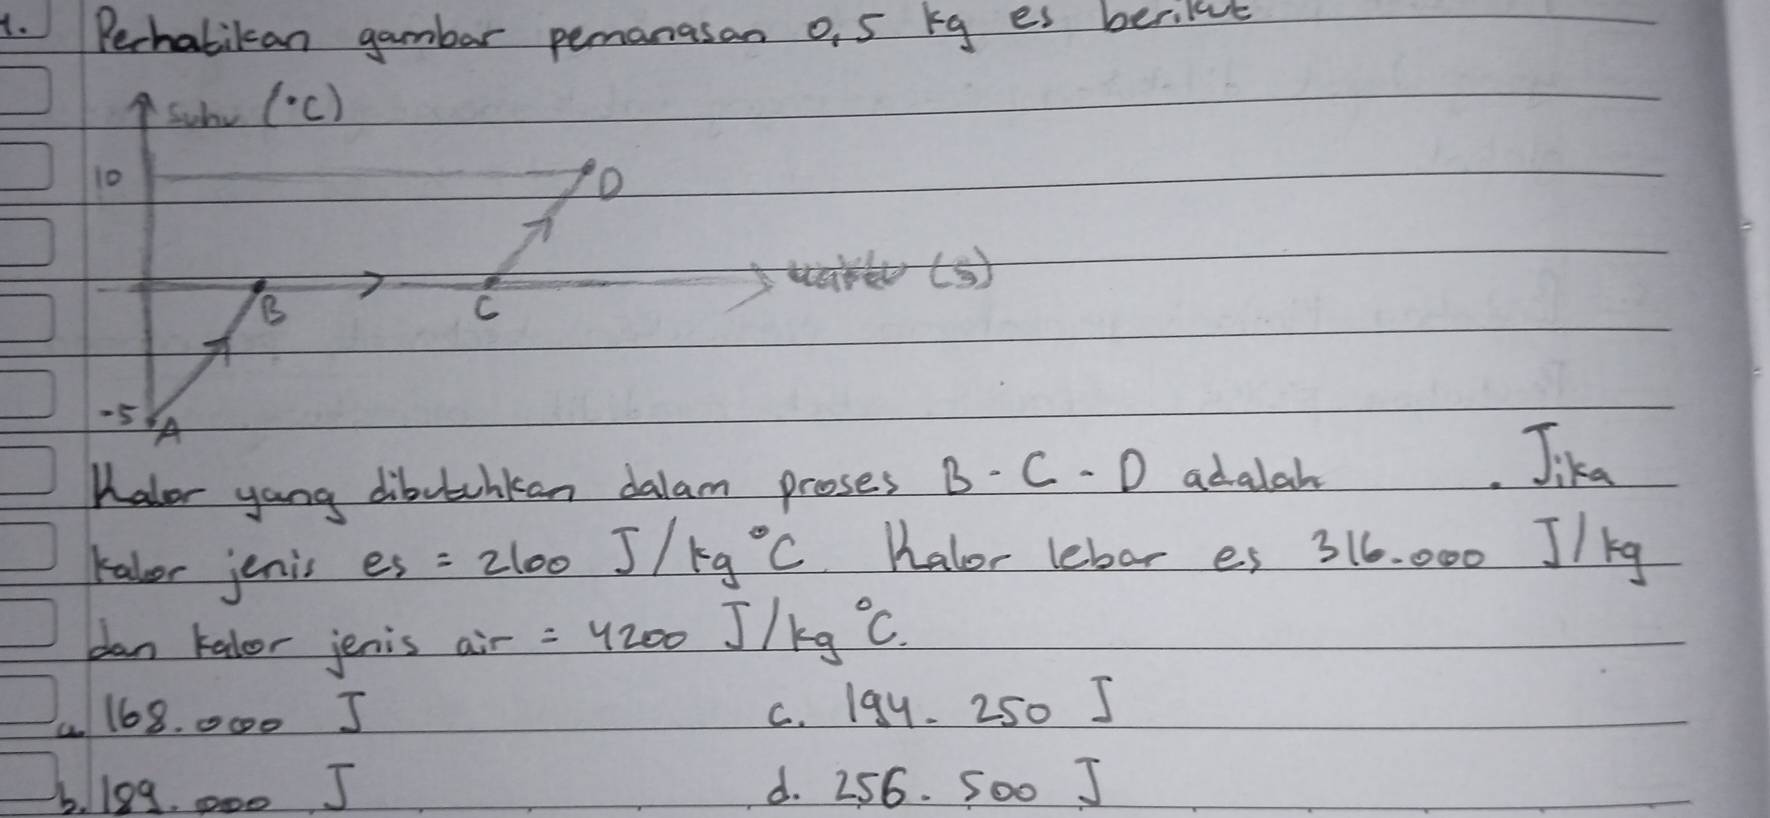 1. Perhatikan gambar pemanasan 0,5 kg es berikut
suhu (°C)
10
D
waktu (s)
B
C
-5
A
Kalor yang dibutuhkan dalam proses B - C - D adalah . Jika
kalor jenis es = 2100 J/kg °C. Kalor lebar es 316.000 J/kg
dan kalor jenis air = 4200 J/kg °C.
a. 168.000 J c. 194. 250 J
b. 189.000 J d. 256. 500 J